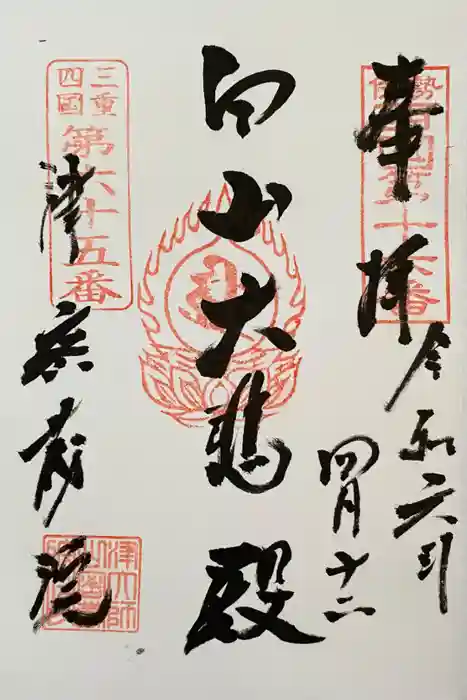 伊勢西国第十六番
奉拝
令和六年
四月十二
白山大悲殿
三重四國
第六十五番
津密蔵院
津大師